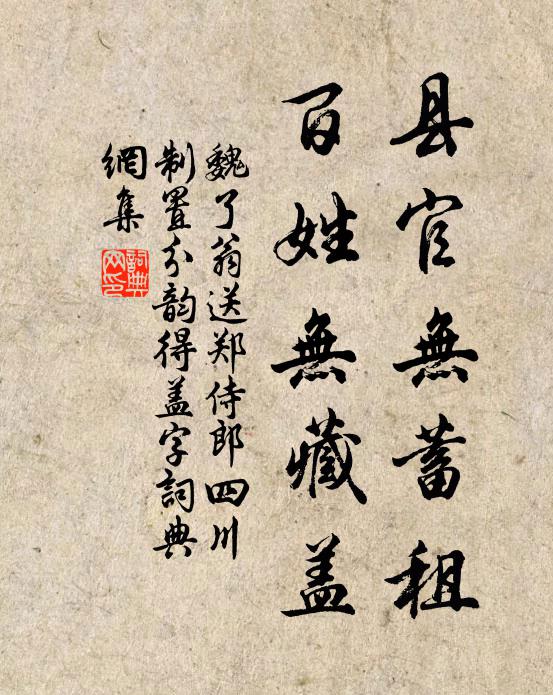 县官無蓄租
百姓無藏盖
魏了翁送郑侍郎四川
制置分韵得盖字詞典
網集
詞典
网印